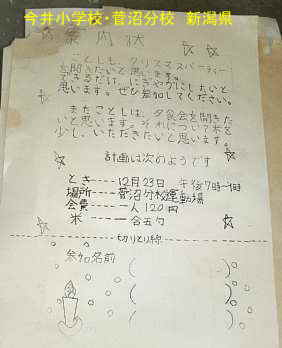 今井小学校・菅沼分校　新潟県
案内状
ことしも、クリスマスパーティー
を開きたいと思います。
できるだけ、にぎやかにしたいと
思います。ぜひ参加してください。
またことしは、夕食会を開きた
いと思います。それについて米を
少し、いただきたいと思います。
計画は次のようです
とき----12月23日　午后7時~9時
場所----菅沼分校運動場
会費----一人120円
米----一合五勺
切りとり線
参加名前